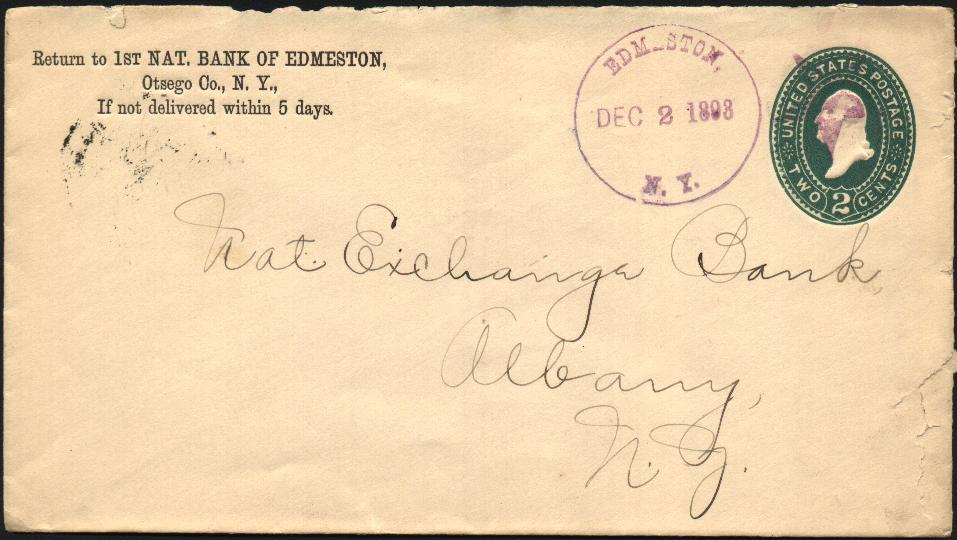 Return to 1ST NAT. BANK OF EDMESTON,
Otsego Co., N. Y.,
If not delivered within 5 days.
EDM_STON,
DEC 2 1893
N. Y.
UNITED STATES POSTAGE
TWO 2 CENTS
Nat. Exchange Bank,
Albany,
N. Y.